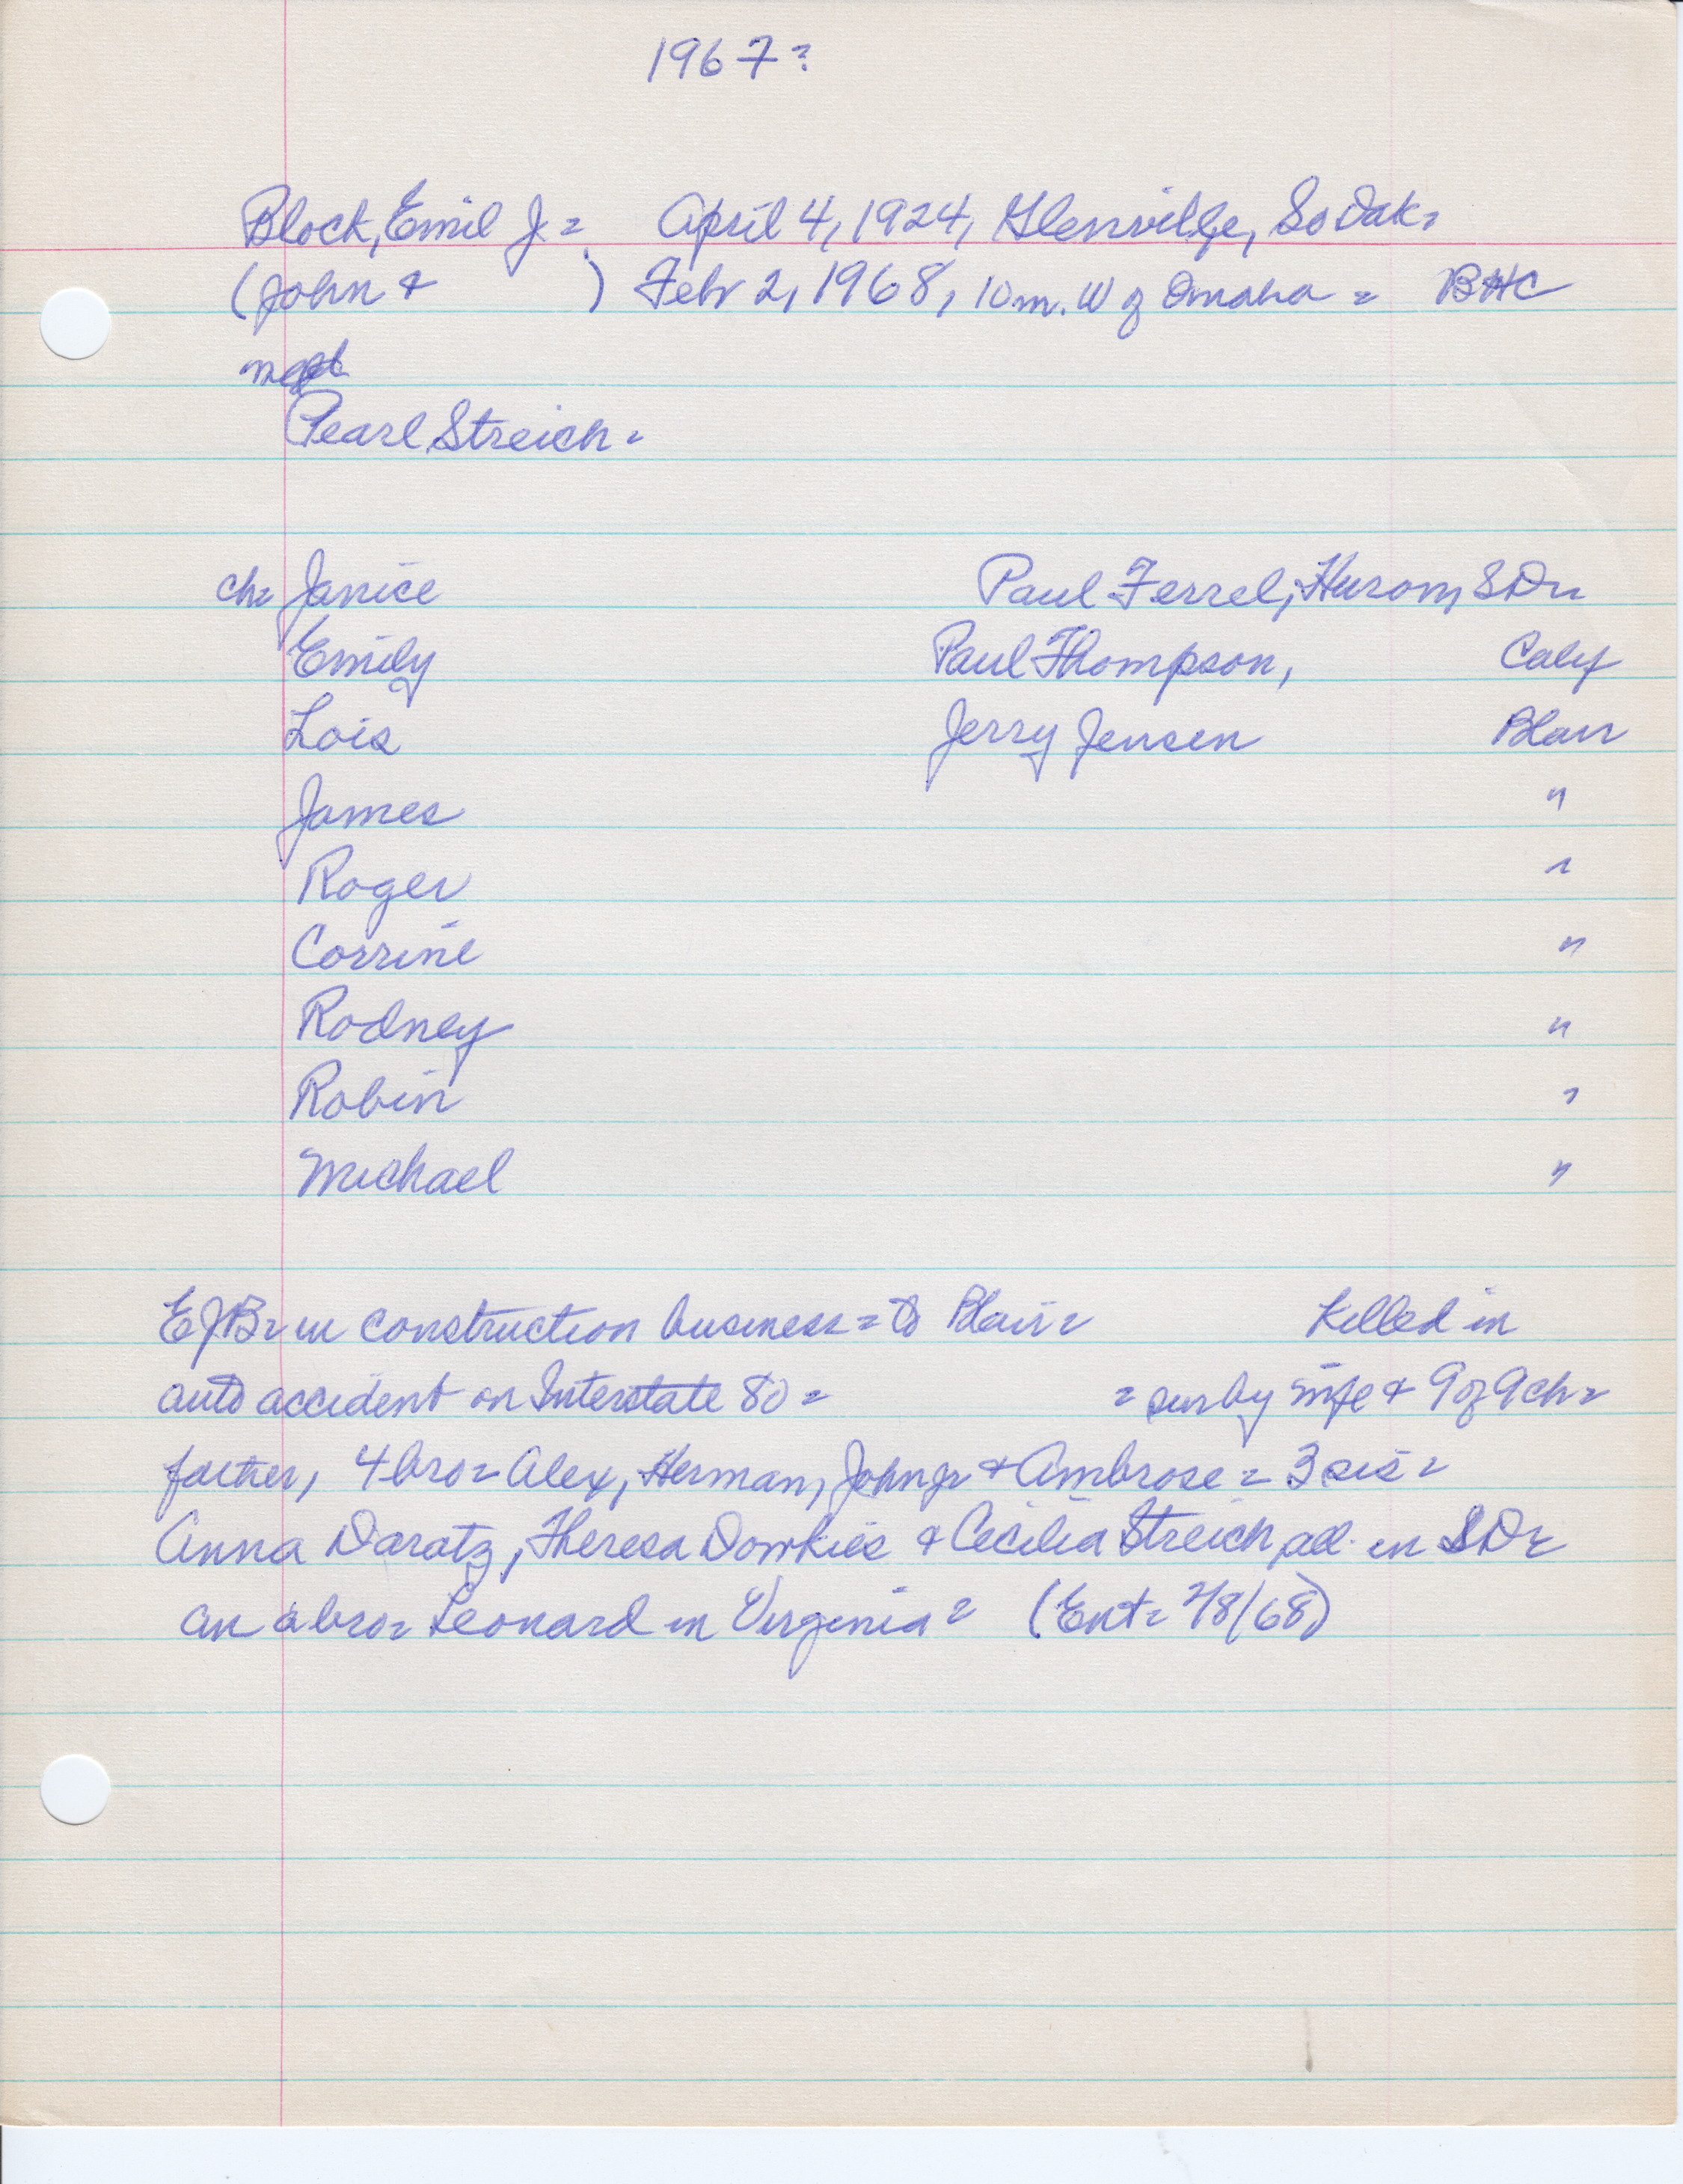 1967?
Block, Emil J = April 4, 1924, Glenville, So Dak =
(John & ) Febr 2, 1968, 10 m. W of Omaha = BHC
Pearl Streich =
ch = Janice Paul Ferrel, Huron, SD =
Emily Paul Thompson, Calif
Lois Jerry Jensen Blair
James "
Roger "
Corrine "
Rodney "
Robin "
Michael "
EJB = in construction business = to Blair = Killed in
auto accident on Interstate 80 = = sur by wife & 9 of 9 ch =
father, 4 bro = Alex, Herman, John Jr & Ambrose = 3 sis =
Anna Daratz, Theresa Dowkies & Cecilia Streich, all in SD =
an a bro = Leonard in Virginia = (Ent = 2/8/68)